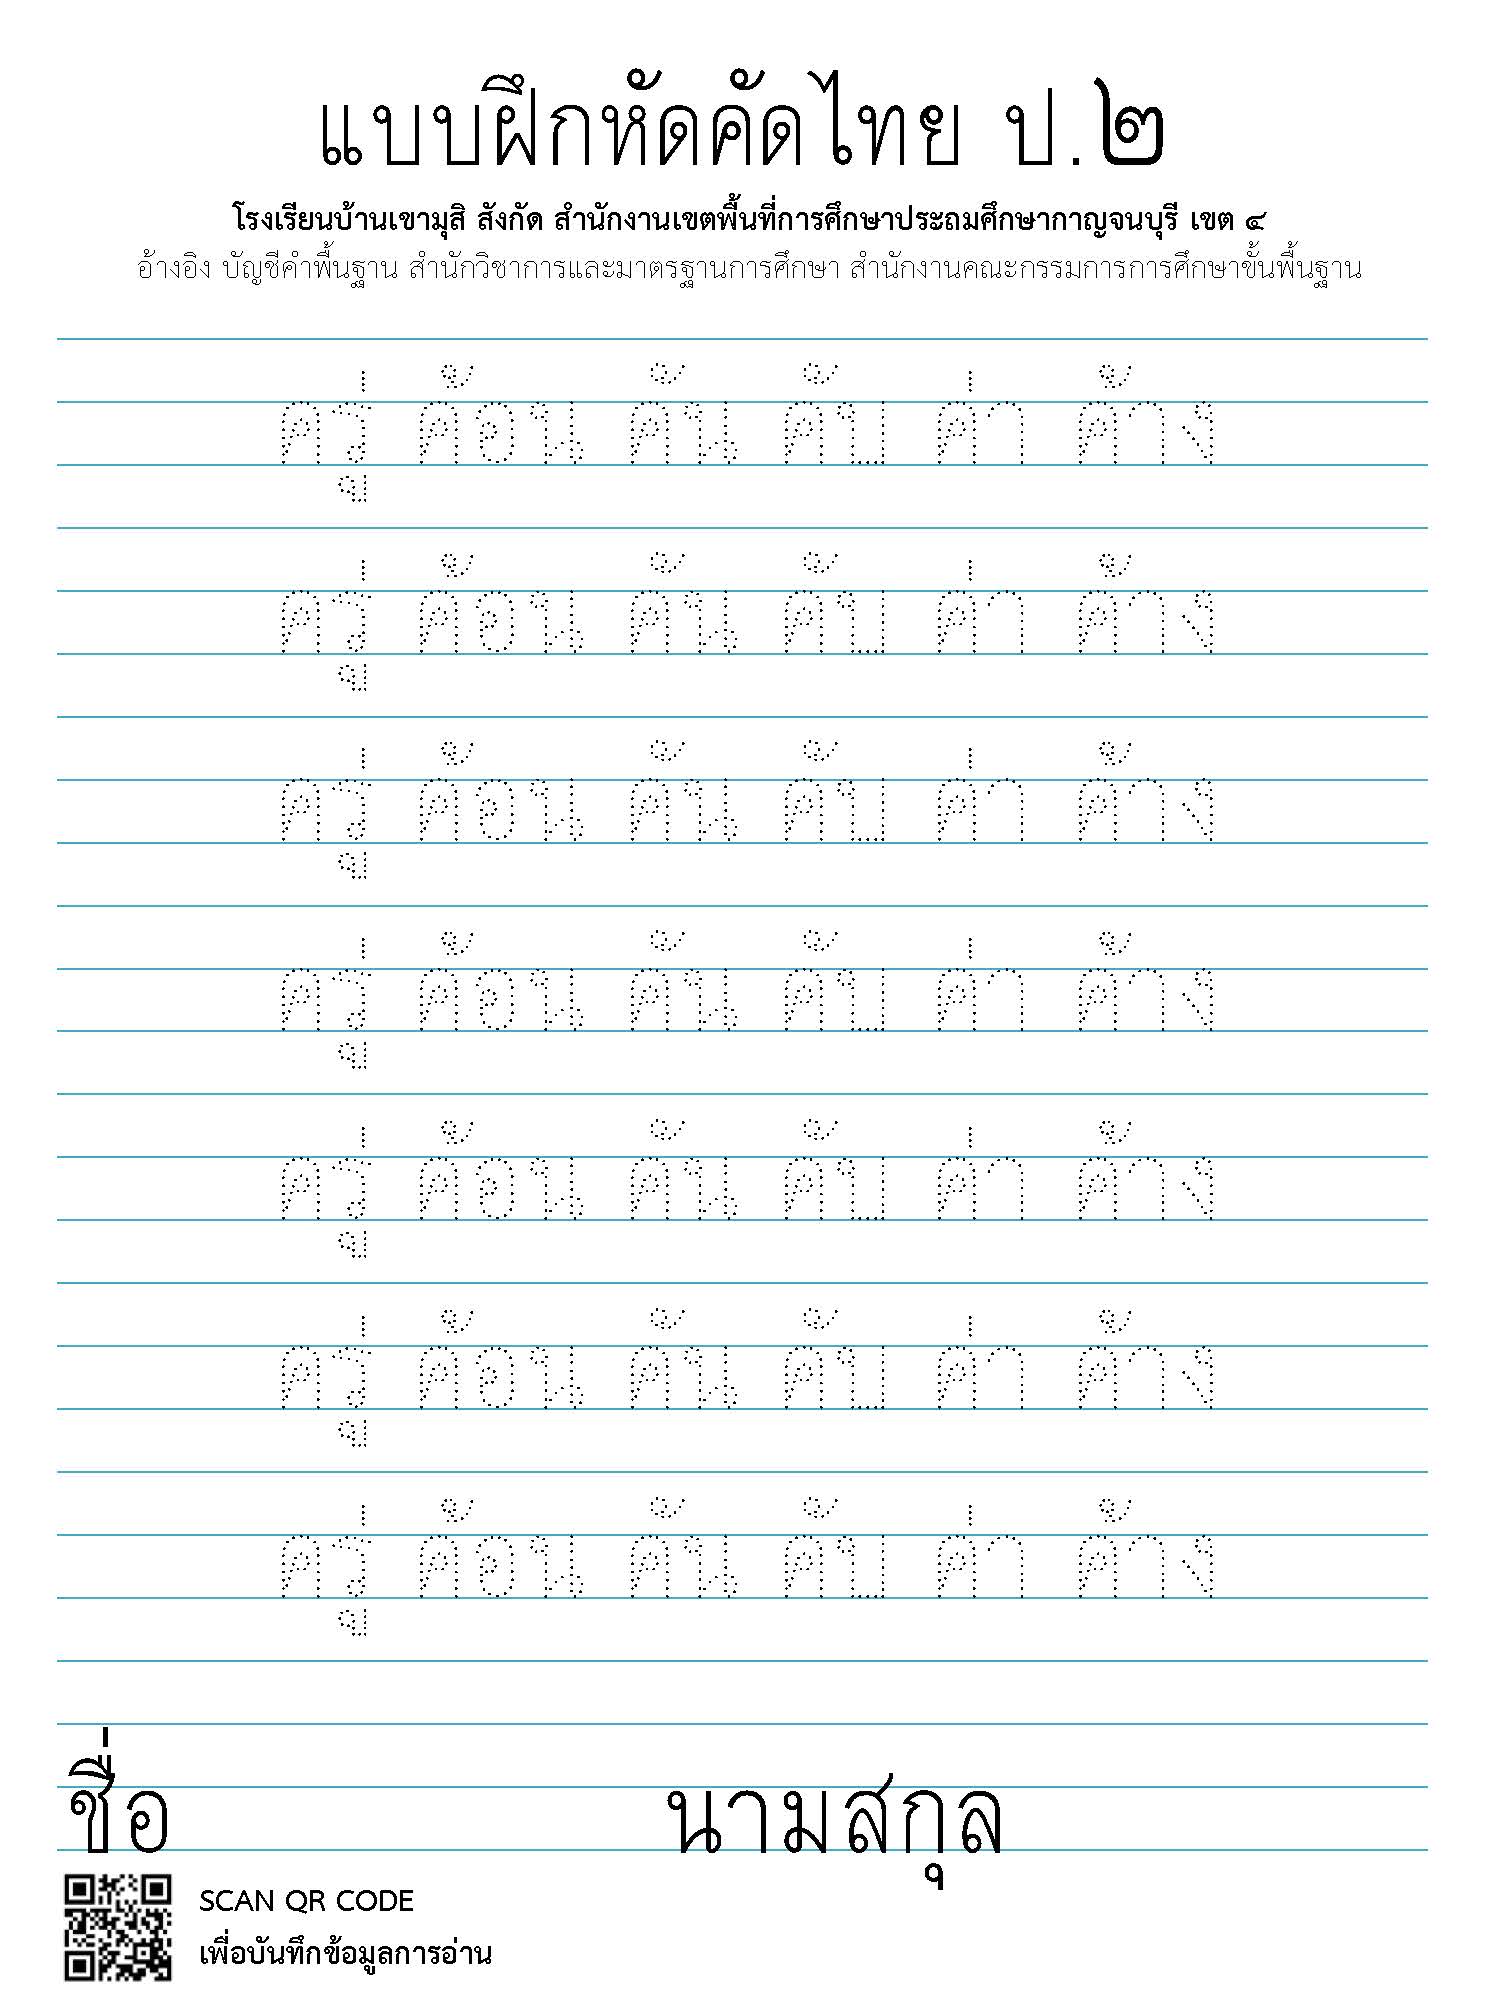 แบบฝึกหัดคัดไทย ป.๒
โรงเรียนบ้านเขามุสิ สังกัด สำนักงานเขตพื้นที่การศึกษาประถมศึกษากาญจนบุรี เขต ๔
อ้างอิง บัญชีคำพื้นฐาน สำนักวิชาการและมาตรฐานการศึกษา สำนักงานคณะกรรมการการศึกษาขั้นพื้นฐาน
ครู่ ค้อน คัน คับ ค่า ค้าง
ครู่ ค้อน คัน คับ ค่า ค้าง
ครู่ ค้อน คัน คับ ค่า ค้าง
ครู่ ค้อน คัน คับ ค่า ค้าง
ครู่ ค้อน คัน คับ ค่า ค้าง
ครู่ ค้อน คัน คับ ค่า ค้าง
ครู่ ค้อน คัน คับ ค่า ค้าง
ชื่อ นามสกุล
SCAN QR CODE
เพื่อบันทึกข้อมูลการอ่าน